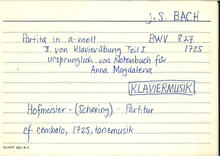 J.S. BACH
Partita in a-moll BWV 827
II. von Klavierübung Teil I 1725
ursprünglich von Notenbuch für
Anna Magdalena
KLAVIERMUSIK
Hofmeister - (Schering) - Partitur
cf cembalo, 1725, tanzmusik